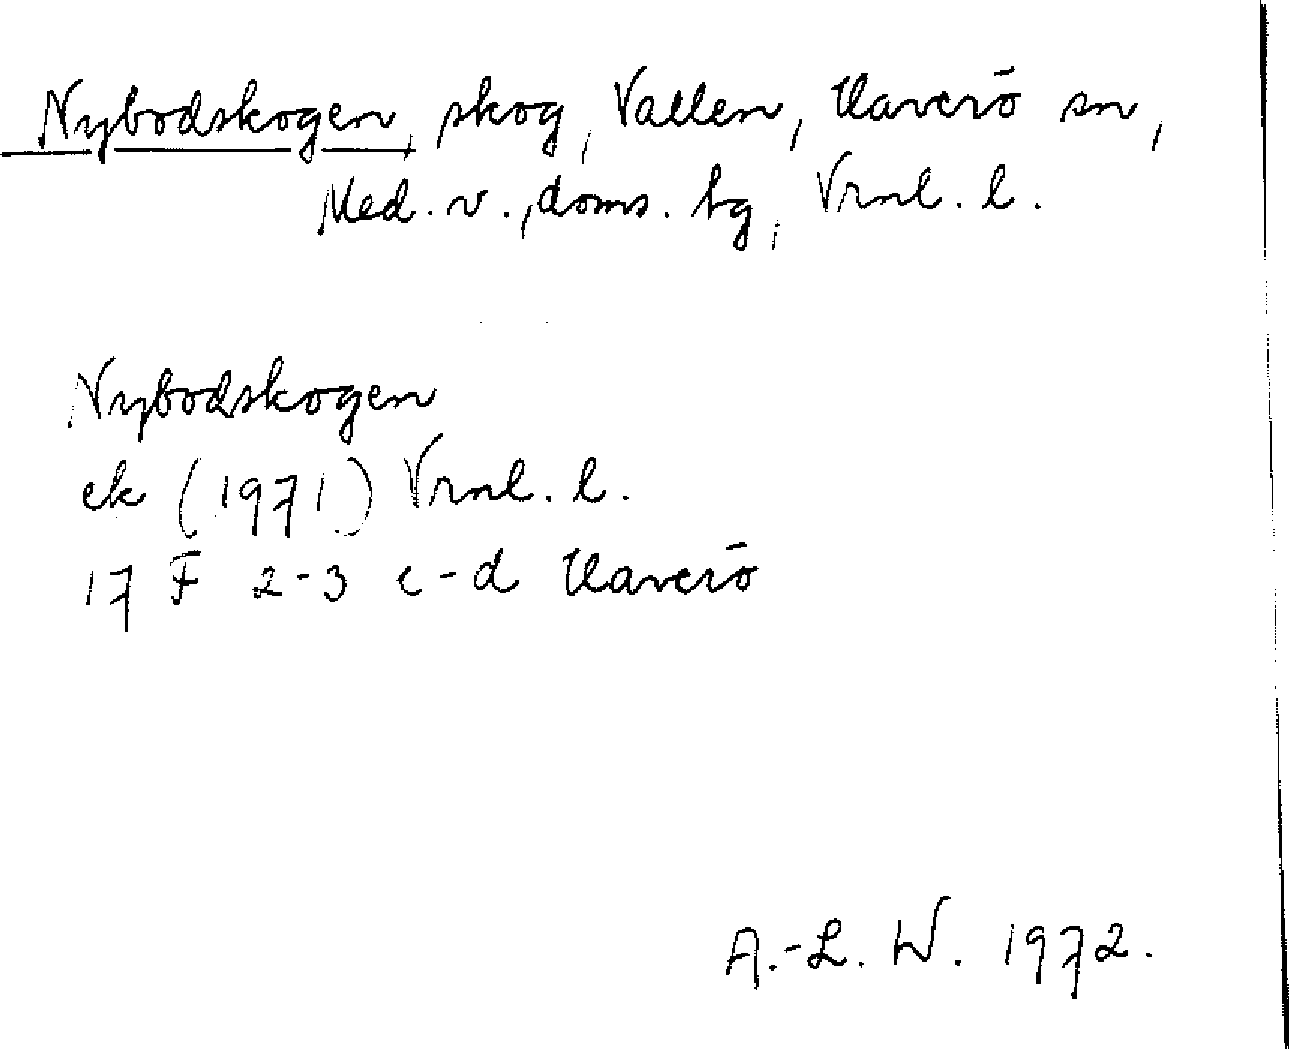 Nybodskogen, skog, Vallen, Haverö sn,
Med. v., doms. hg, Vrnl. l.
Nybodskogen
ek (1971) Vrnl. l.
17 F 2-3 c-d Haverö
A.-L. W. 1972.